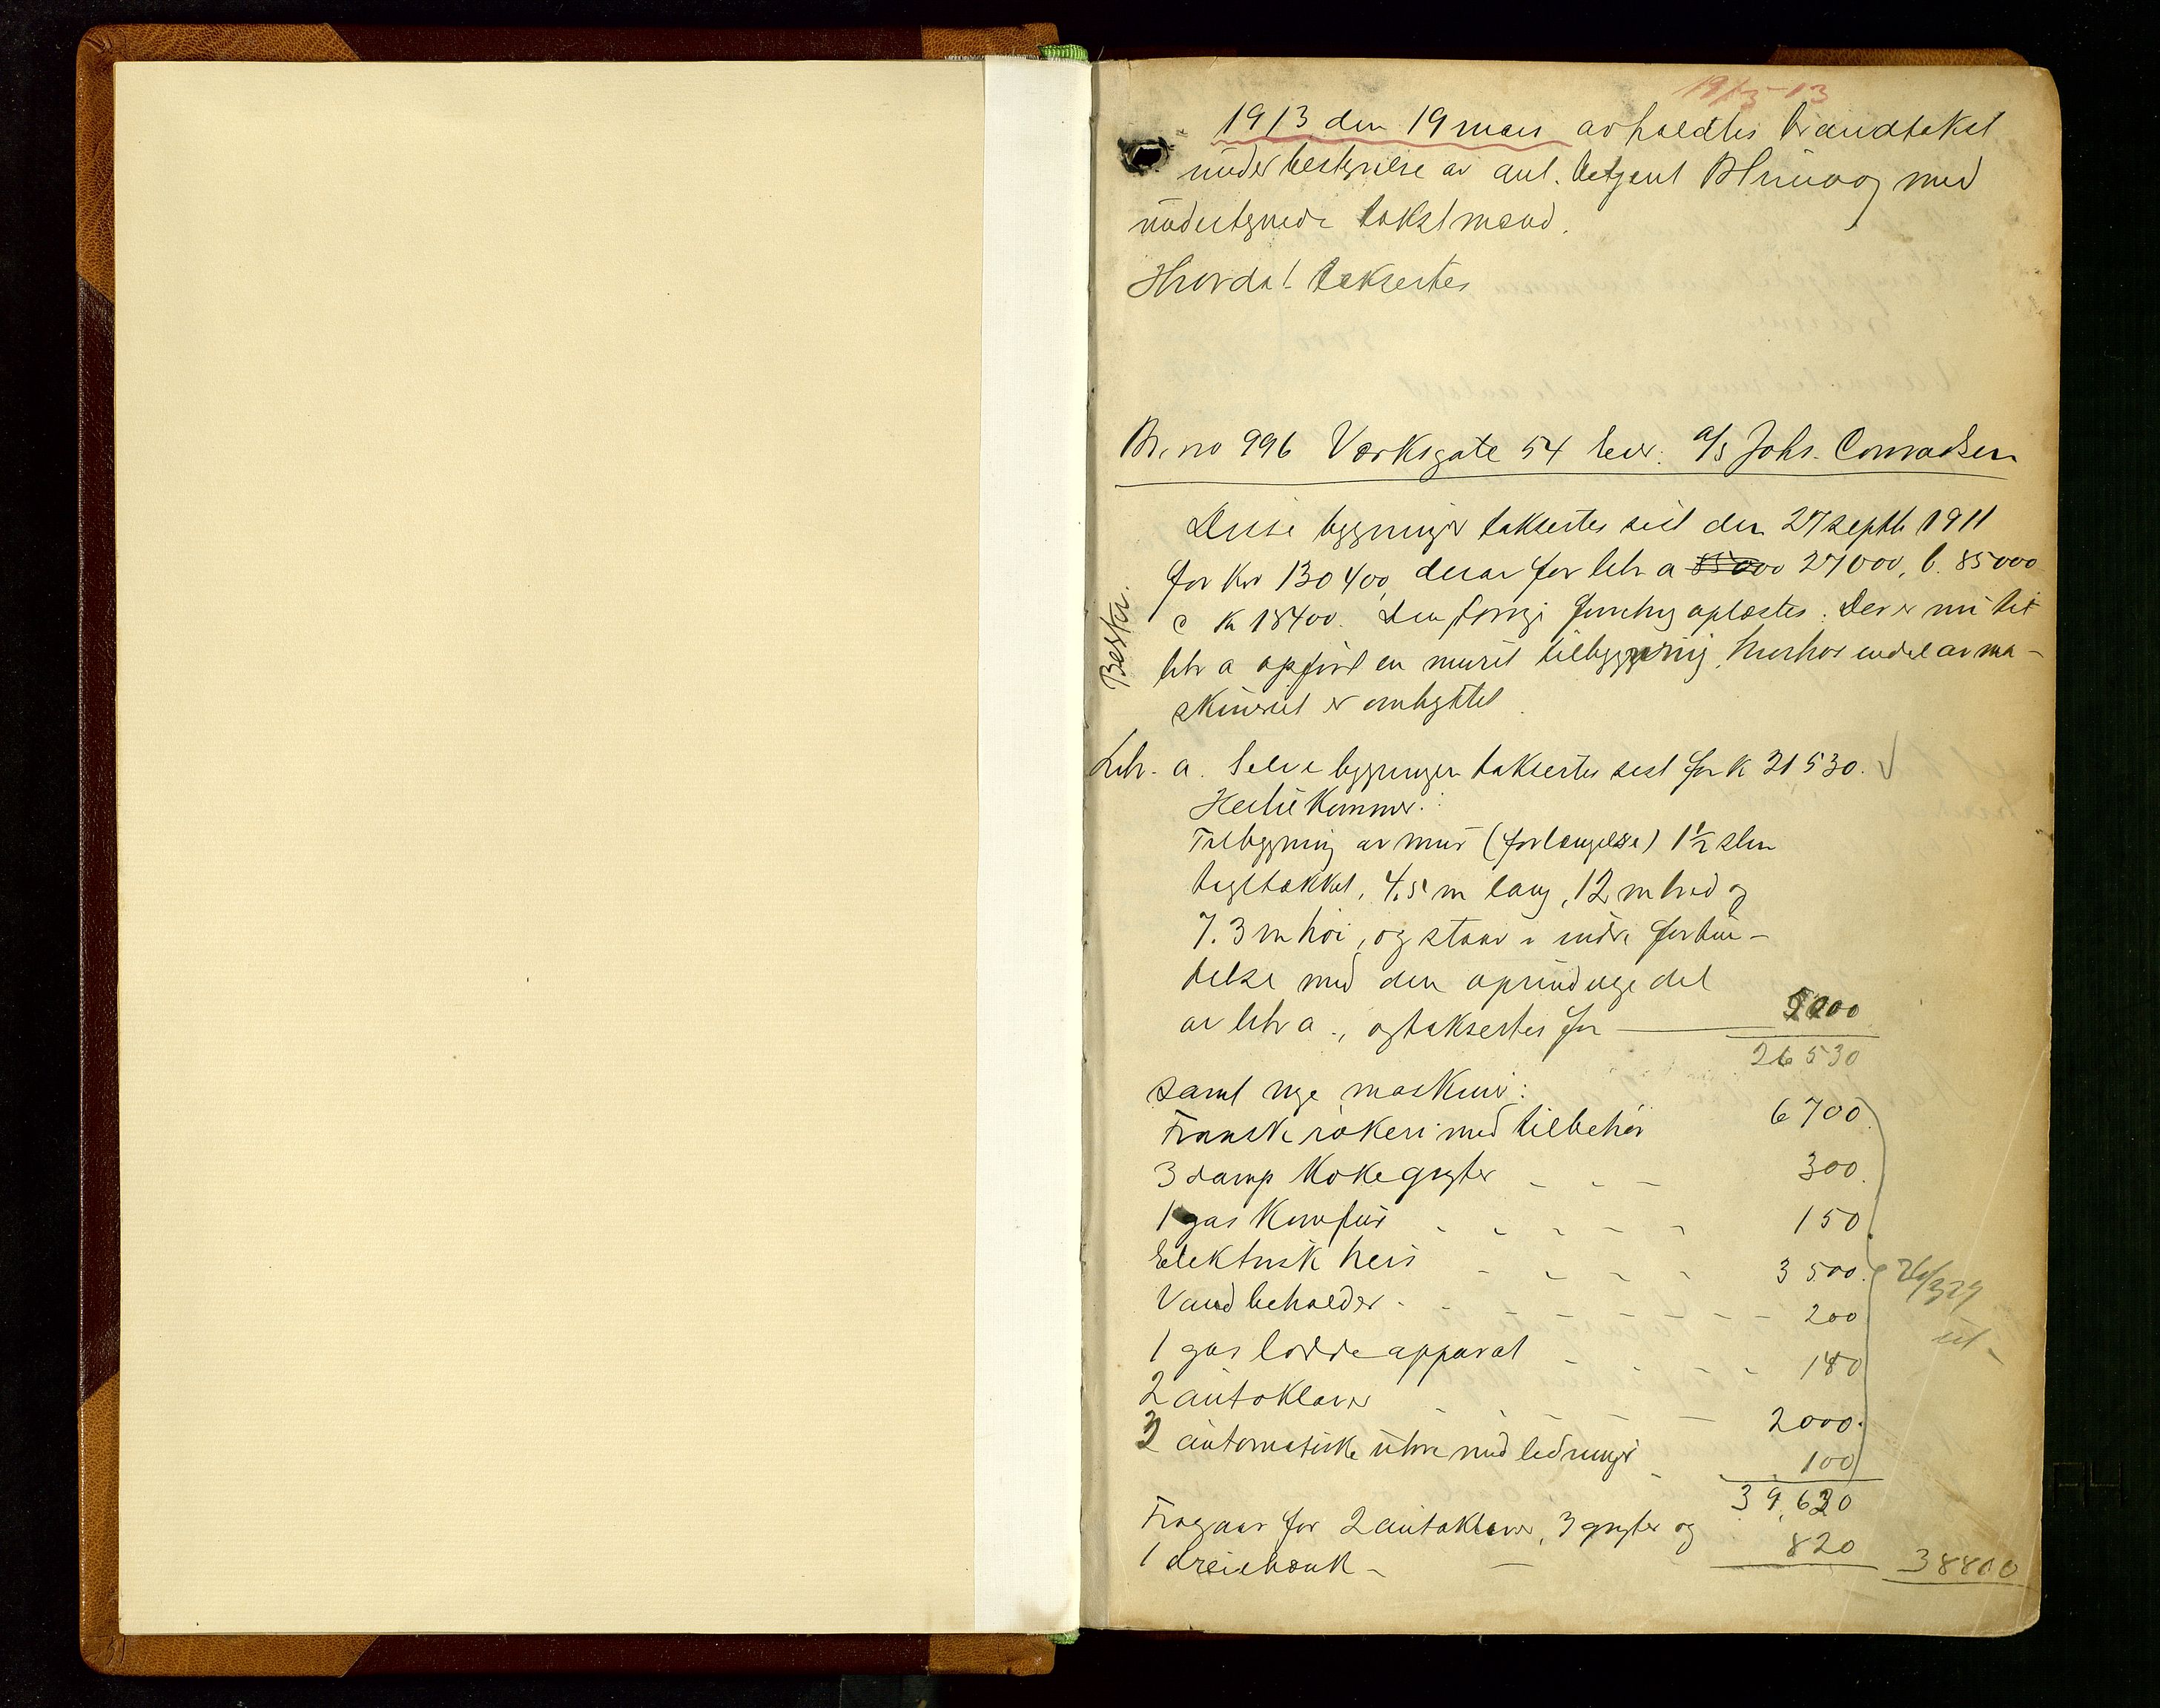 19/3-13
1913 den 19 mars avholdtes brandtakst
under bestyrelse av aut. betjent med
undertegnede takstmænd.
Hvorda! taksertes
Br. no 996 Værksgate 54 tilhör. a/s Johs. Conradsen
Disse bygninger taksertes sist den 27 septb 1911
for Kr 130 400, derav for litr a 85000 27000, b. 85000
c Kr 18400. Den forrige forretng oplæstes. Der er nu til
litr a opfört en muret tilbyggning, hvorhos endel av ma-
skineriet er ombyttet.
Beskr.
Litr. a. Selve bygningen taksertes sist for K 21 530.
Hertil kommer:
Tilbygning av mur (forlængelse) 1½ sten
tegltækket, 4,5 m lang, 12 m bred og
7.3 m höi, og staar i indre forbin-
delse med den oprindelige del
av litr a., og taksertes for 5000
26 530
samt nye maskiner:
Fransk rökeri med tilbehör 6 700.
3 damp Kokegryter - - - 300.
1 gas Komfür - - - - - 150.
Elektrisk heis - - - - 3 500.
Vandbeholder - - - - - - - - 200
1 gas loddeapparat - - - - 180
2 autoklaver - - - - - 2000.
2 automatiske uhre med ledninger - 100
39,630
26/3 29
ut.
Fragaar for 2 autoklaver, 3 gryter og
1 dreiebænk - - 820 38800